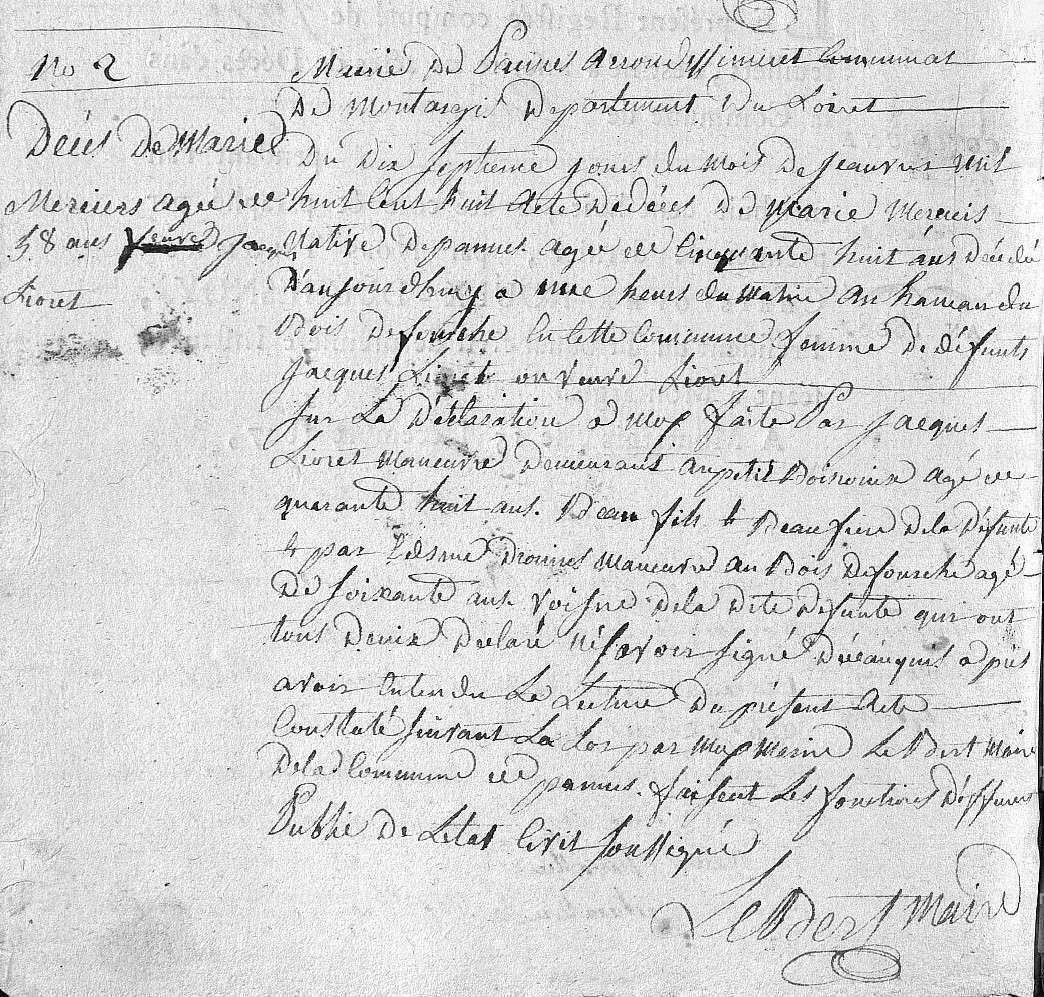 No 2
Décès De Marie
Merciers agée de
58 ans veuve Jacques
Lioret
Mairie De Pannes Arrondissiment Communal
De Montargis Departement Du Loiret
Du Dix septieme jours du Mois De Jeanvier Mil
huit Cent huit Acte De décès De Marie Merciers
Native De pannes agée de Cinquante huit ans Décédé
D'aujourdhuy a une heure du Matin au hameau du
Bois De fourche En Cette Commune femme De défunts
Jacques Lioret ou veuve Lioret
Sur La Déclaration a Moy faite Par Jacques
Lioret Maneuvre Demeurant au petit agé de
quarante huit ans. Beau fils & Beau frere De la Défunte
& par Edsme Maneuvre au Bois De fourche agé
De Soixante ans. Voisine De la Dite Defunte qui ont
tous Deuix Déclaré Né savoir signé De ce anquis a près
avoir Entendu La Lecture Du présent Acte
Constaté suivant La Loi par Moy Le Bert Maire
De la Commune de pannes. faisent Les fonctions D'officier
Public De Letat Civil soussigné
Le Bert Maire